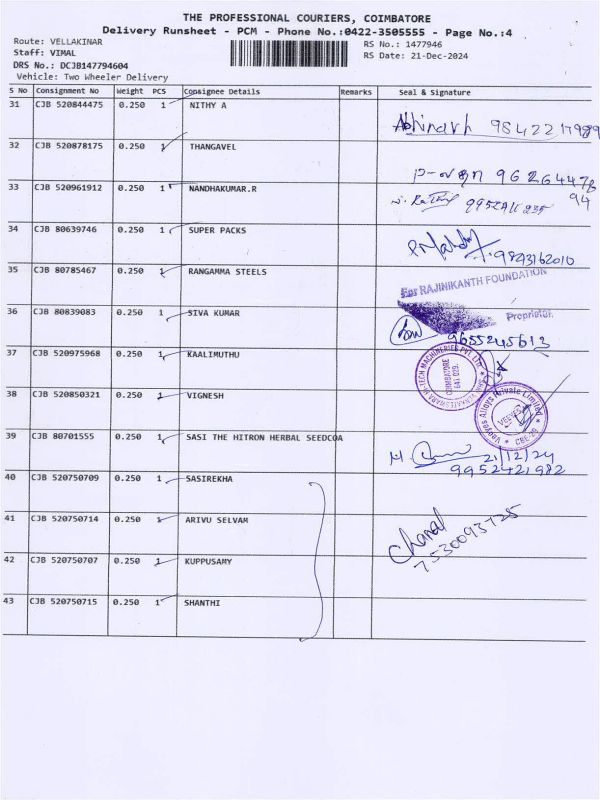 THE PROFESSIONAL COURIERS, COIMBATORE
Delivery Runsheet - PCM - Phone No.:0422-3505555 - Page No.:4
Route: VELLAKINAR
RS No.: 1477946
Staff: VIMAL
RS Date: 21-Dec-2024
DRS No.: DCJB147794604
Vehicle: Two Wheeler Delivery
S No Consignment No Weight PCS Consignee Details Remarks Seal & Signature
31 CJB 520844475 0.250 1 NITHY A
Abhinavh 9842217989
32 CJB 520878175 0.250 1 THANGAVEL
96264478
94
33 CJB 520961912 0.250 1 NANDHAKUMAR.R
34 CJB 80639746 0.250 1 SUPER PACKS
9843162010
35 CJB 80785467 0.250 1 RANGAMMA STEELS
For RAJINIKANTH FOUNDATION
Proprietor.
36 CJB 80839083 0.250 1 SIVA KUMAR
9655245613
37 CJB 520975968 0.250 1 KAALIMUTHU
HI-TECH MACHINERIES PVT. LTD.
COIMBATORE
641 029.
38 CJB 520850321 0.250 1 VIGNESH
Veeyes Alloys Private Limited
VEEYES
CBE-29
39 CJB 80701555 0.250 1 SASI THE HITRON HERBAL SEEDCOA
21/12/24
9952421982
40 CJB 520750709 0.250 1 SASIREKHA
41 CJB 520750714 0.250 1 ARIVU SELVAM
7530093725
42 CJB 520750707 0.250 1 KUPPUSAMY
43 CJB 520750715 0.250 1 SHANTHI